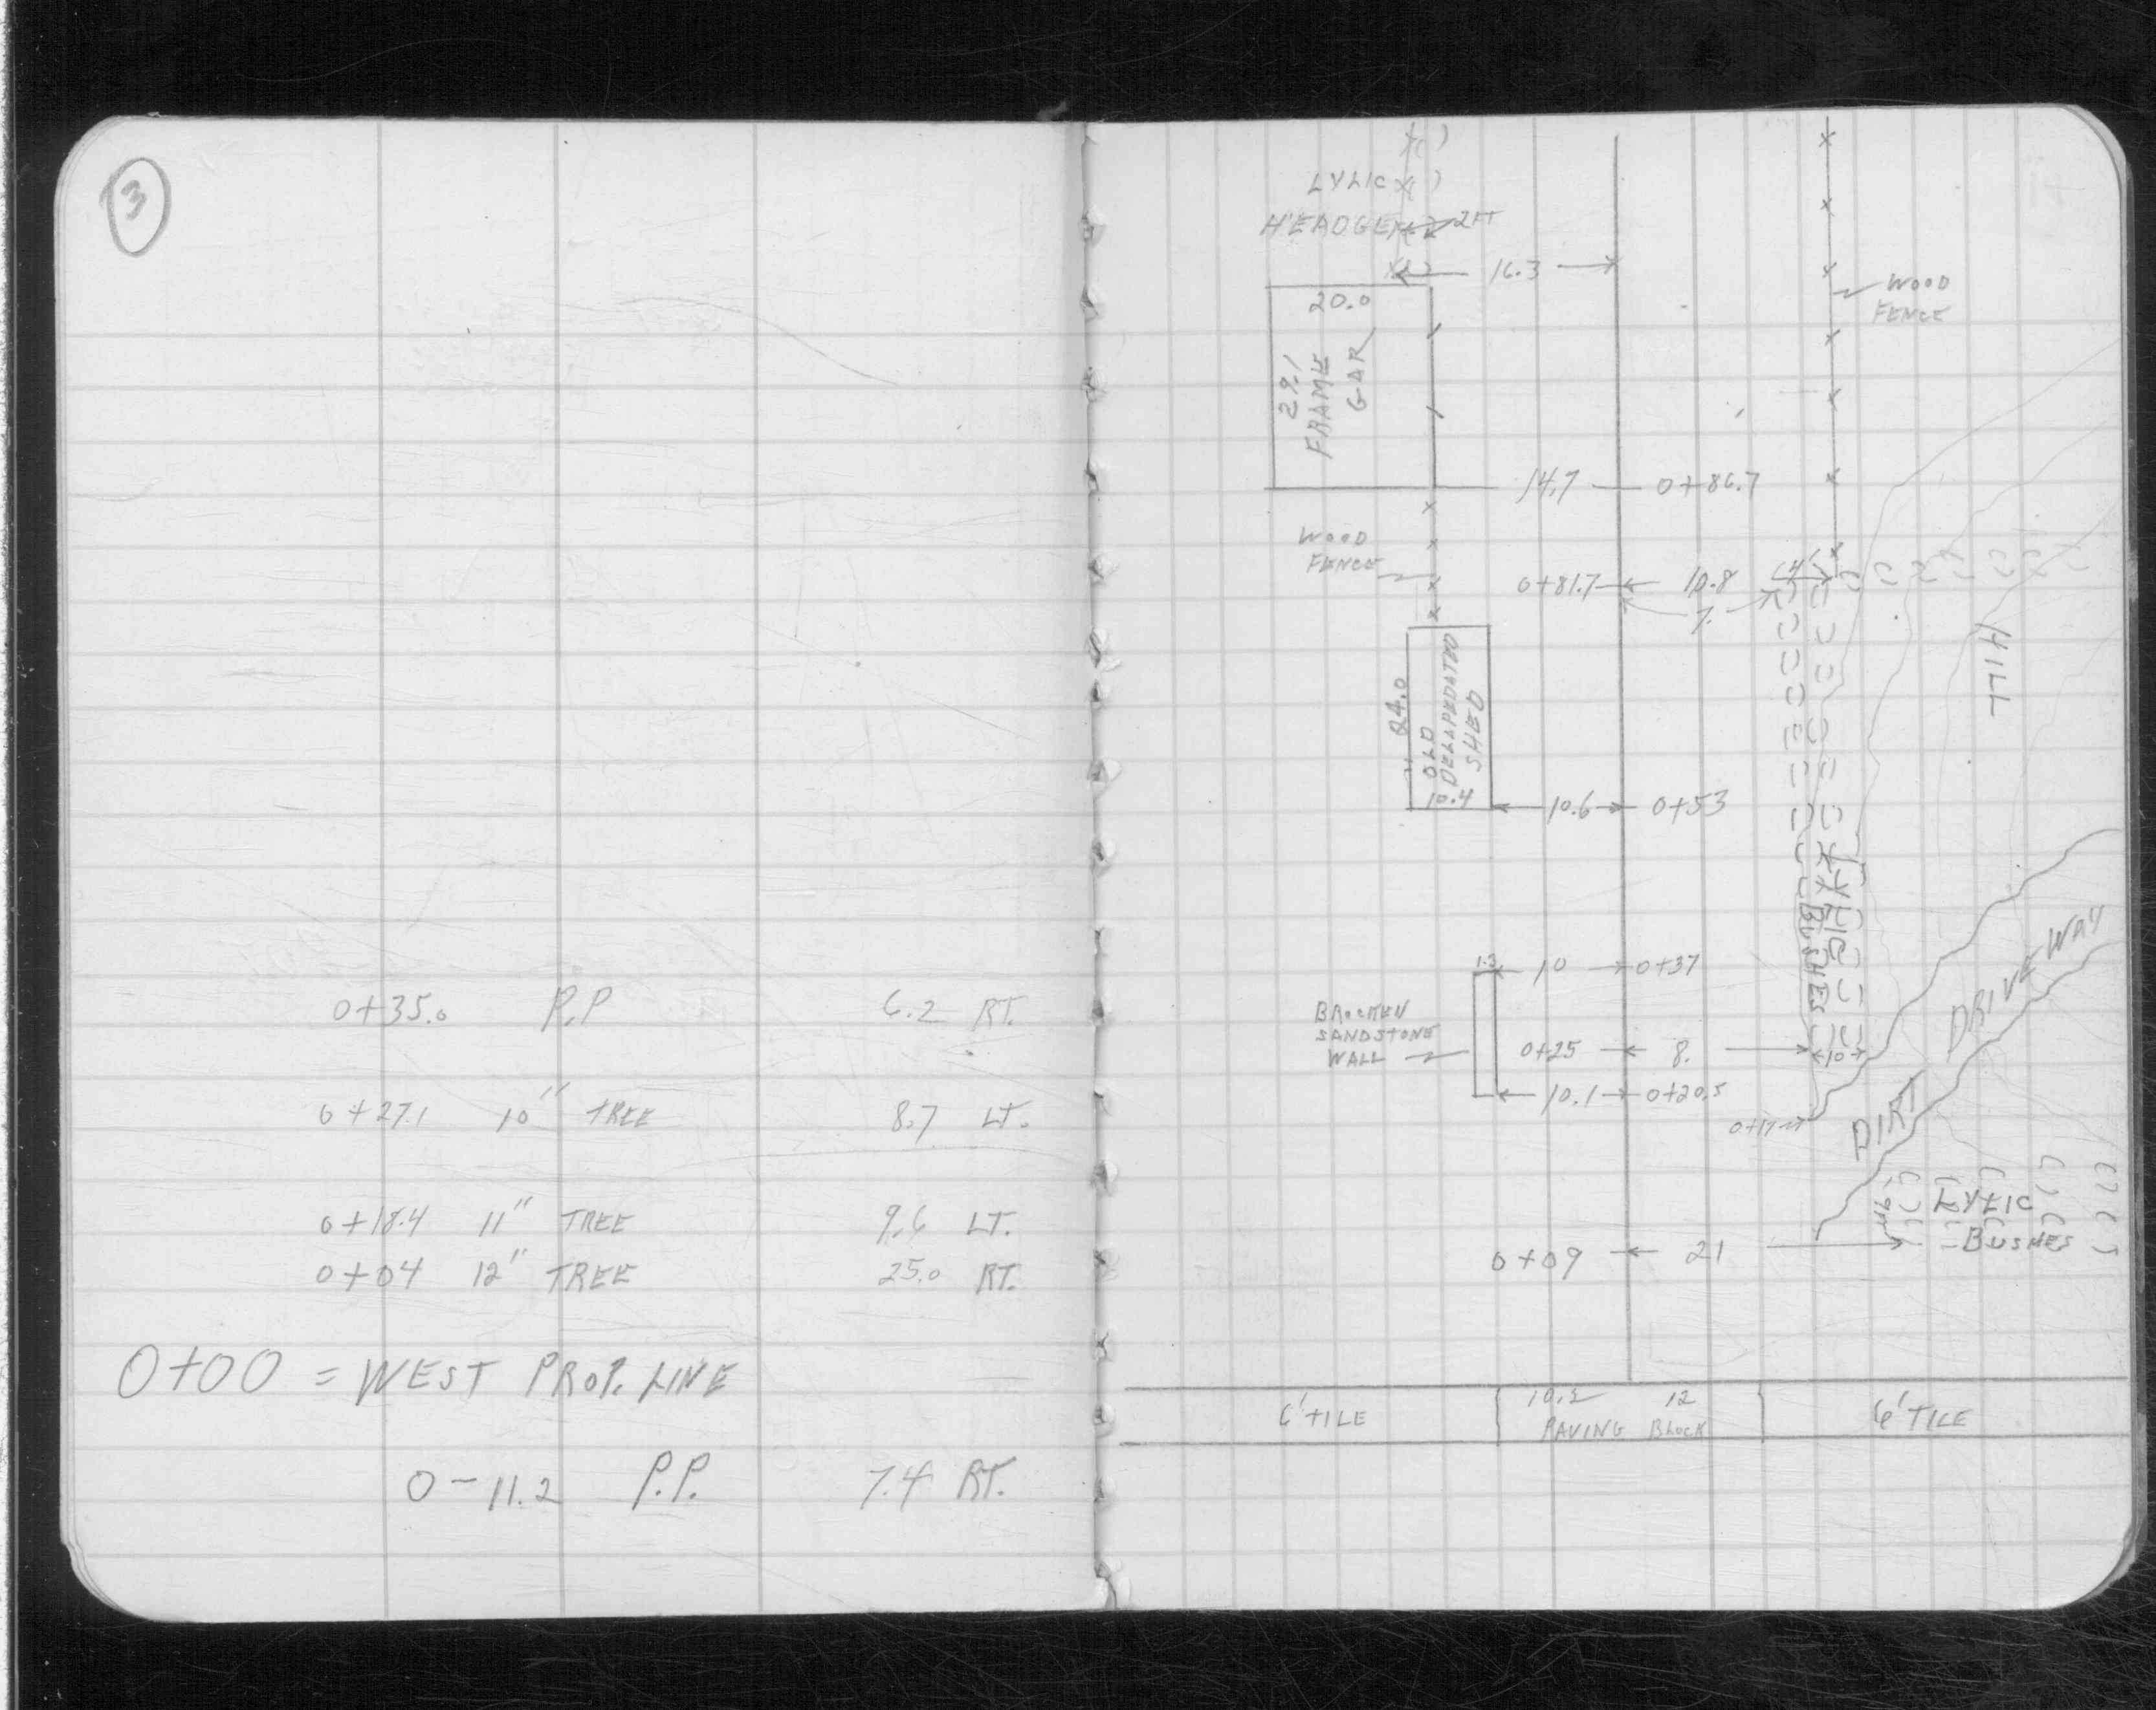 3
0+35.0 P.P 6.2 RT.
0+27.1 10" TREE 8.7 LT.
0+18.4 11" TREE 9.6 LT.
0+04 12" TREE 25.0 RT.
0+00 = WEST PROP. LINE
0-11.2 P.P. 7.4 RT.
LYLIC
HEADGE 2FT
16.3
20.0
FRAME
GAR
WOOD
FENCE
14.7 0+86.7
WOOD
FENCE
0+81.7 10.8 4
7.
HILL
24.0
OLD
DELAPEDATED
SHED
10.4
10.6 0+53
LYLIC
BUSHES
1.3 10 0+37
BROCKEN
SANDSTONE
WALL
0+25 8. 10
10.1 0+20.5
0+17
DIRT DRIVE WAY
LYLIC
BUSHES
0+09 21
6' TILE
10.2 12
PAVING BLOCK
6' TILE